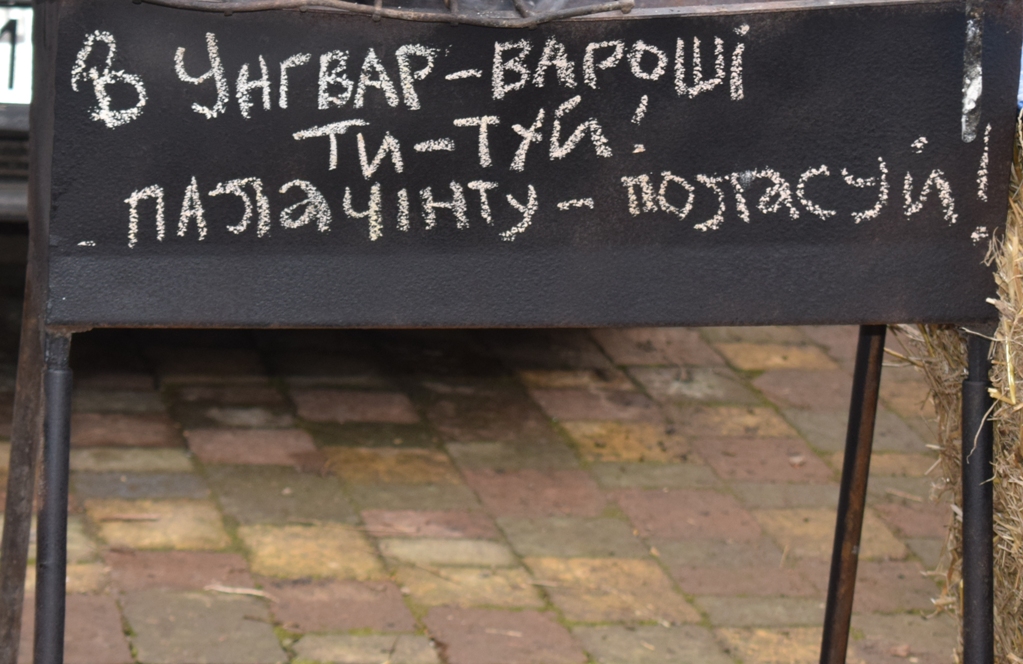 В УНГВАР-ВАРОШІ
ТИ-ТУЙ!
ПАЛАЧІНТУ-ПОЛАСУЙ!